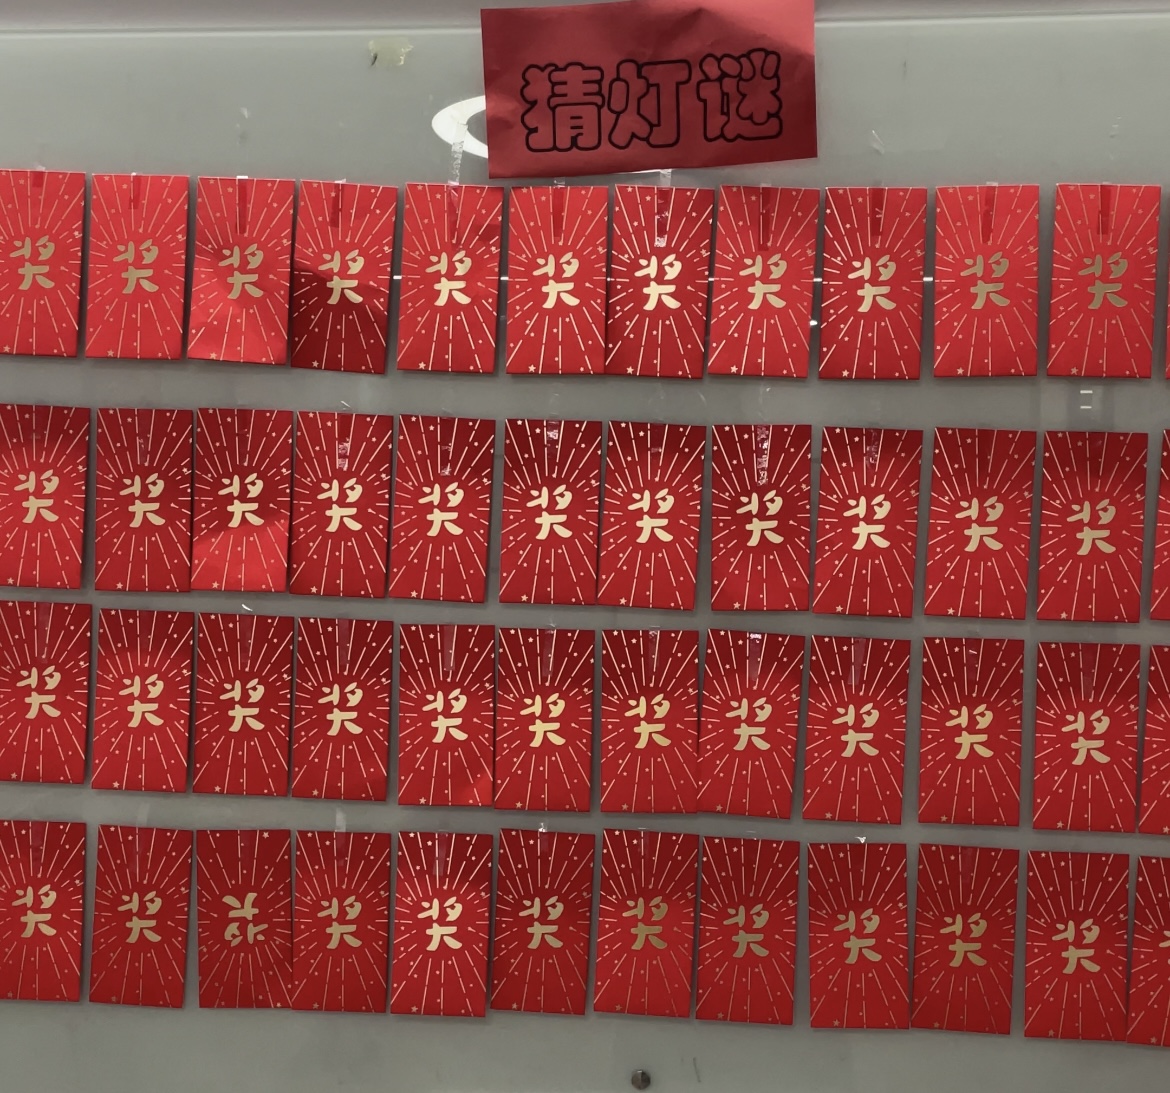 猜灯谜
奖 奖 奖 奖 奖 奖 奖 奖 奖 奖 奖
奖 奖 奖 奖 奖 奖 奖 奖 奖 奖 奖
奖 奖 奖 奖 奖 奖 奖 奖 奖 奖 奖
奖 奖 奖 奖 奖 奖 奖 奖 奖 奖 奖